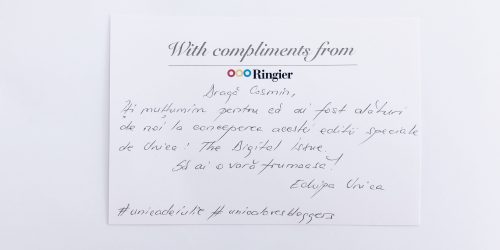 With compliments from
Ringier
Dragă Cosmin,
Îți mulțumim pentru că ai fost alături
de noi la conceperea acestei ediții speciale
de Unica: The Digital Issue.
Să ai o vară frumoasă!
Echipa Unica
#unicadeiulie #unicalovesbloggers